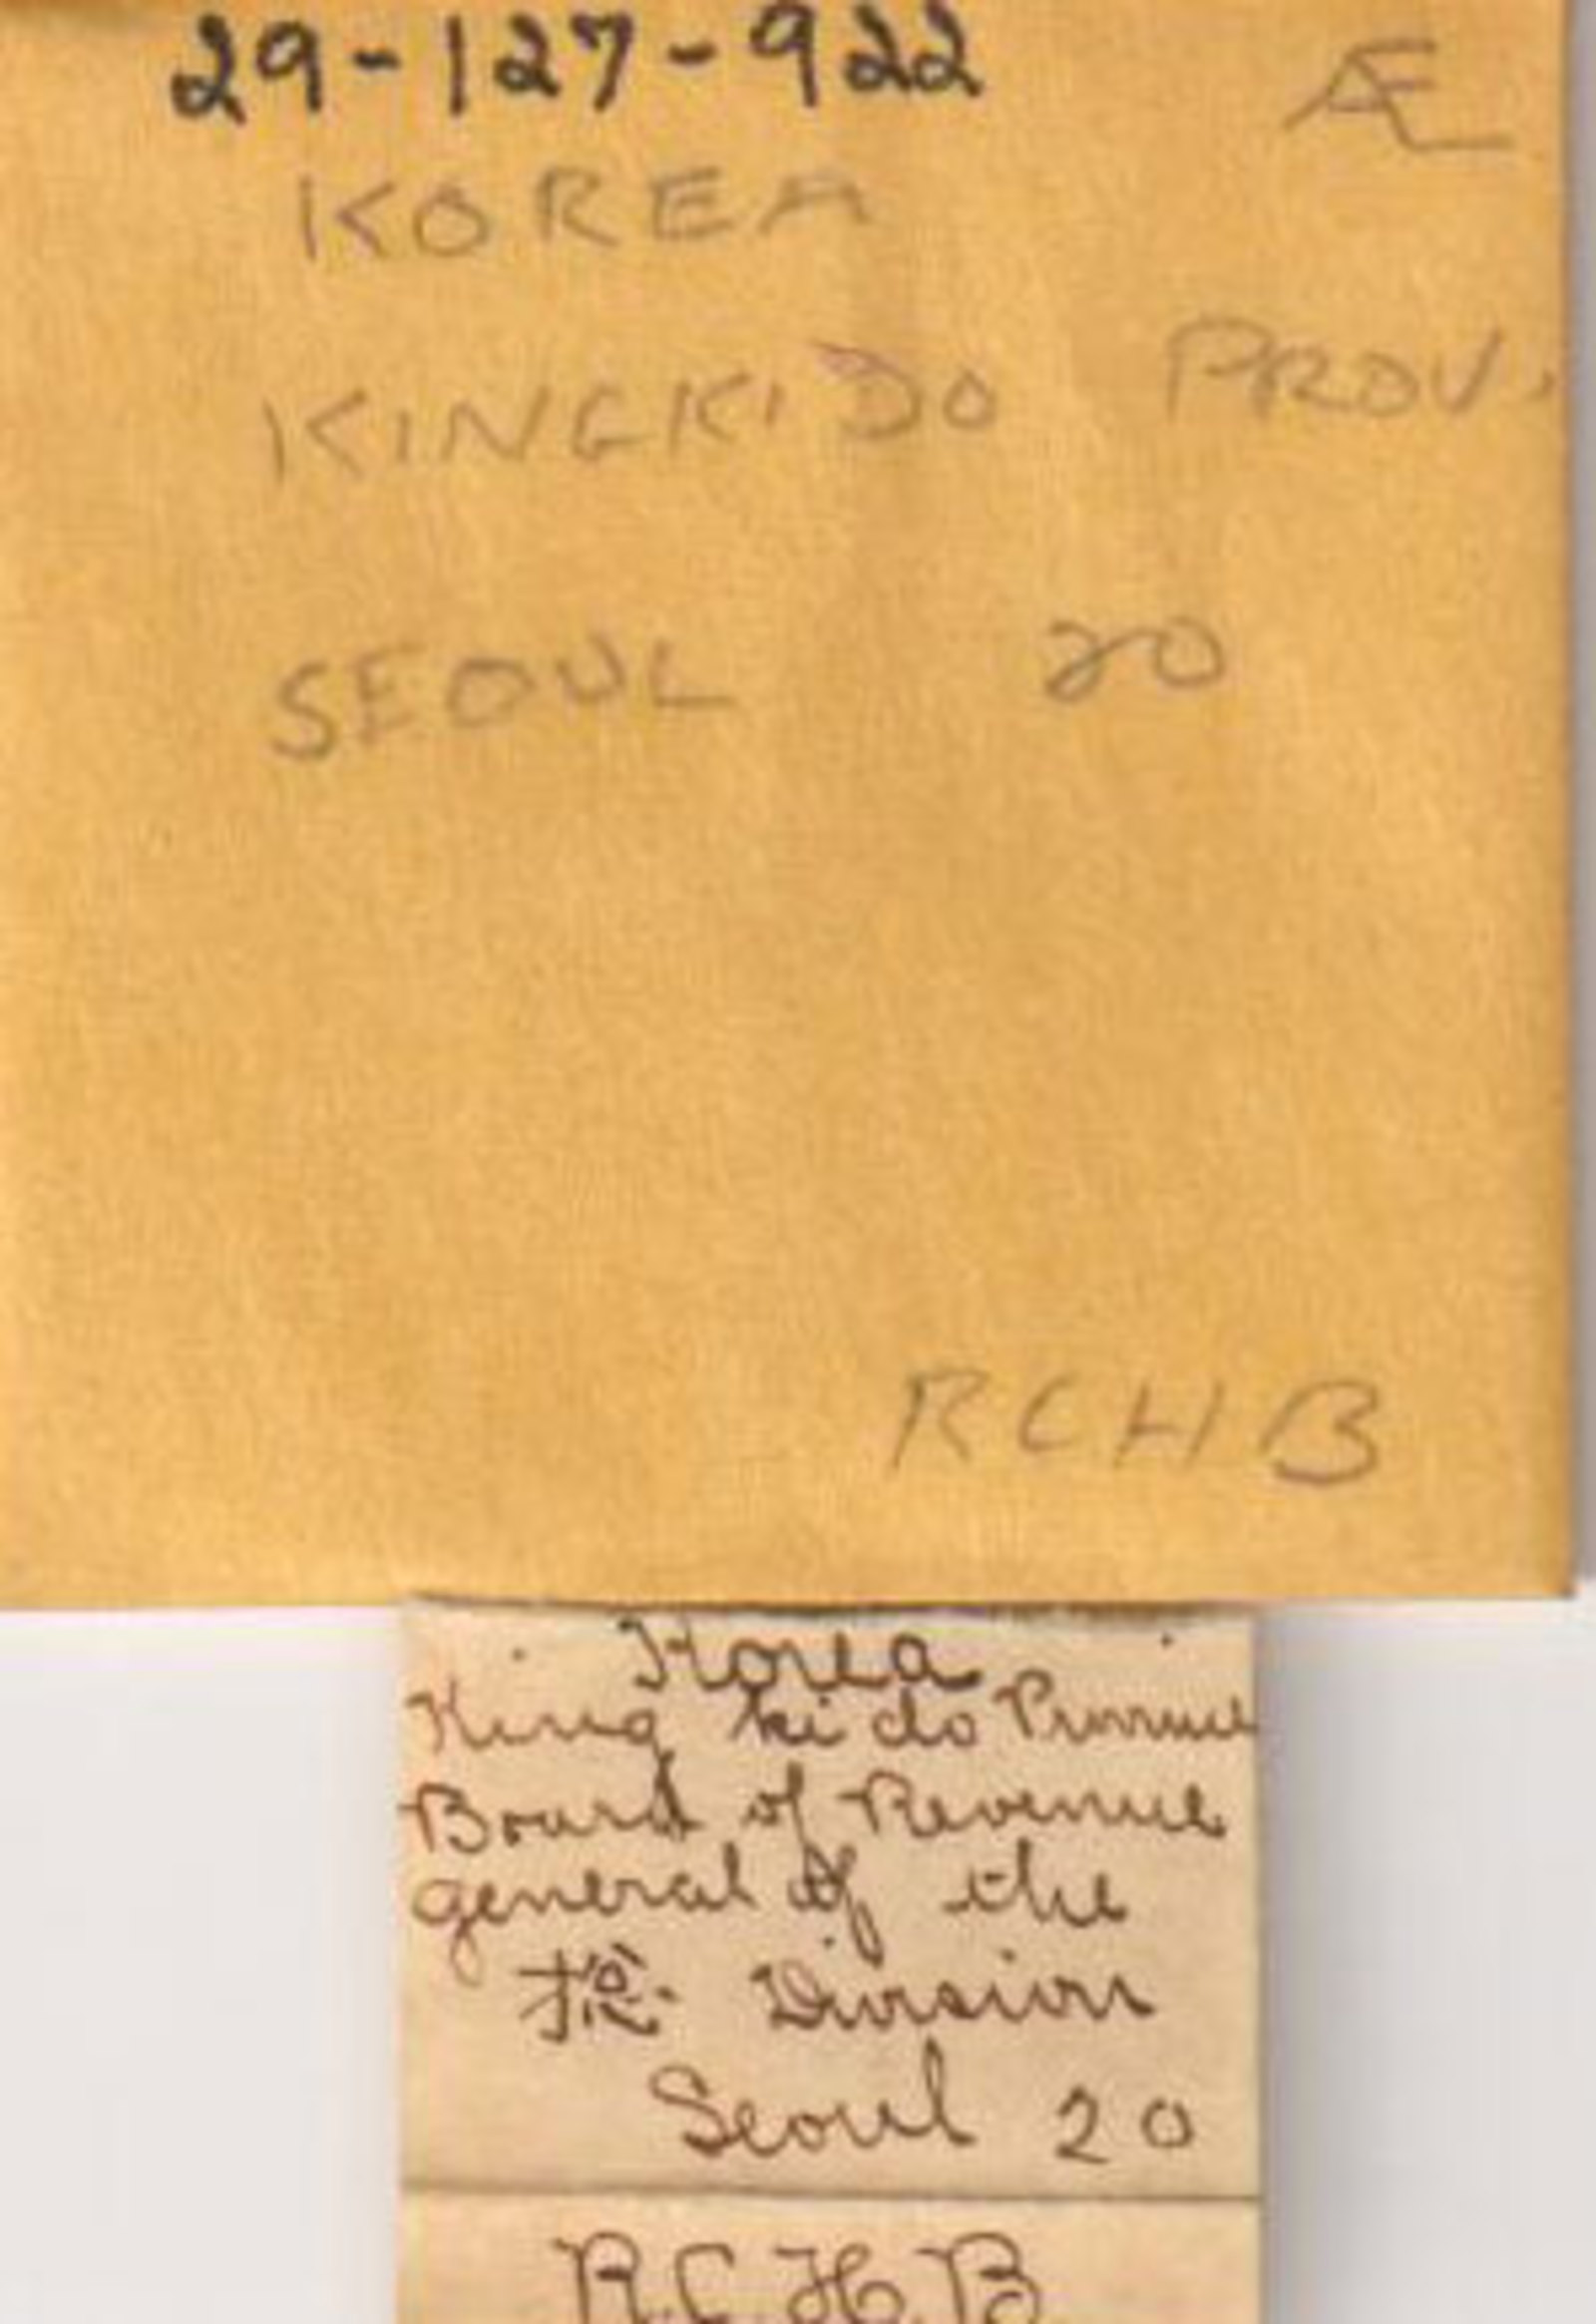 29-127-922 Æ
KOREA
KINGKIDO PROV.
SEOUL 20
RCHB
Korea
King ki do Province
Board of Revenue
general of the
摠 Division
Seoul 20
R.C.H.B